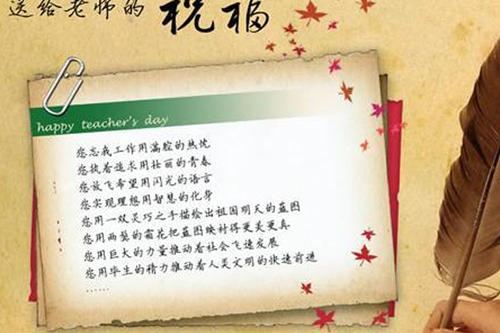 送给老师的 祝福
happy teacher's day
您忘我工作用满腔的热忱
您执着追求用壮丽的青春
您放飞希望用闪光的语言
您实现理想用智慧的化身
您用一双灵巧之手描绘出祖国明天的蓝图
您用两鬓的霜花把蓝图映衬得更美更真
您用巨大的力量推动着社会飞速发展
您用毕生的精力推动着人类文明的快速前进
......